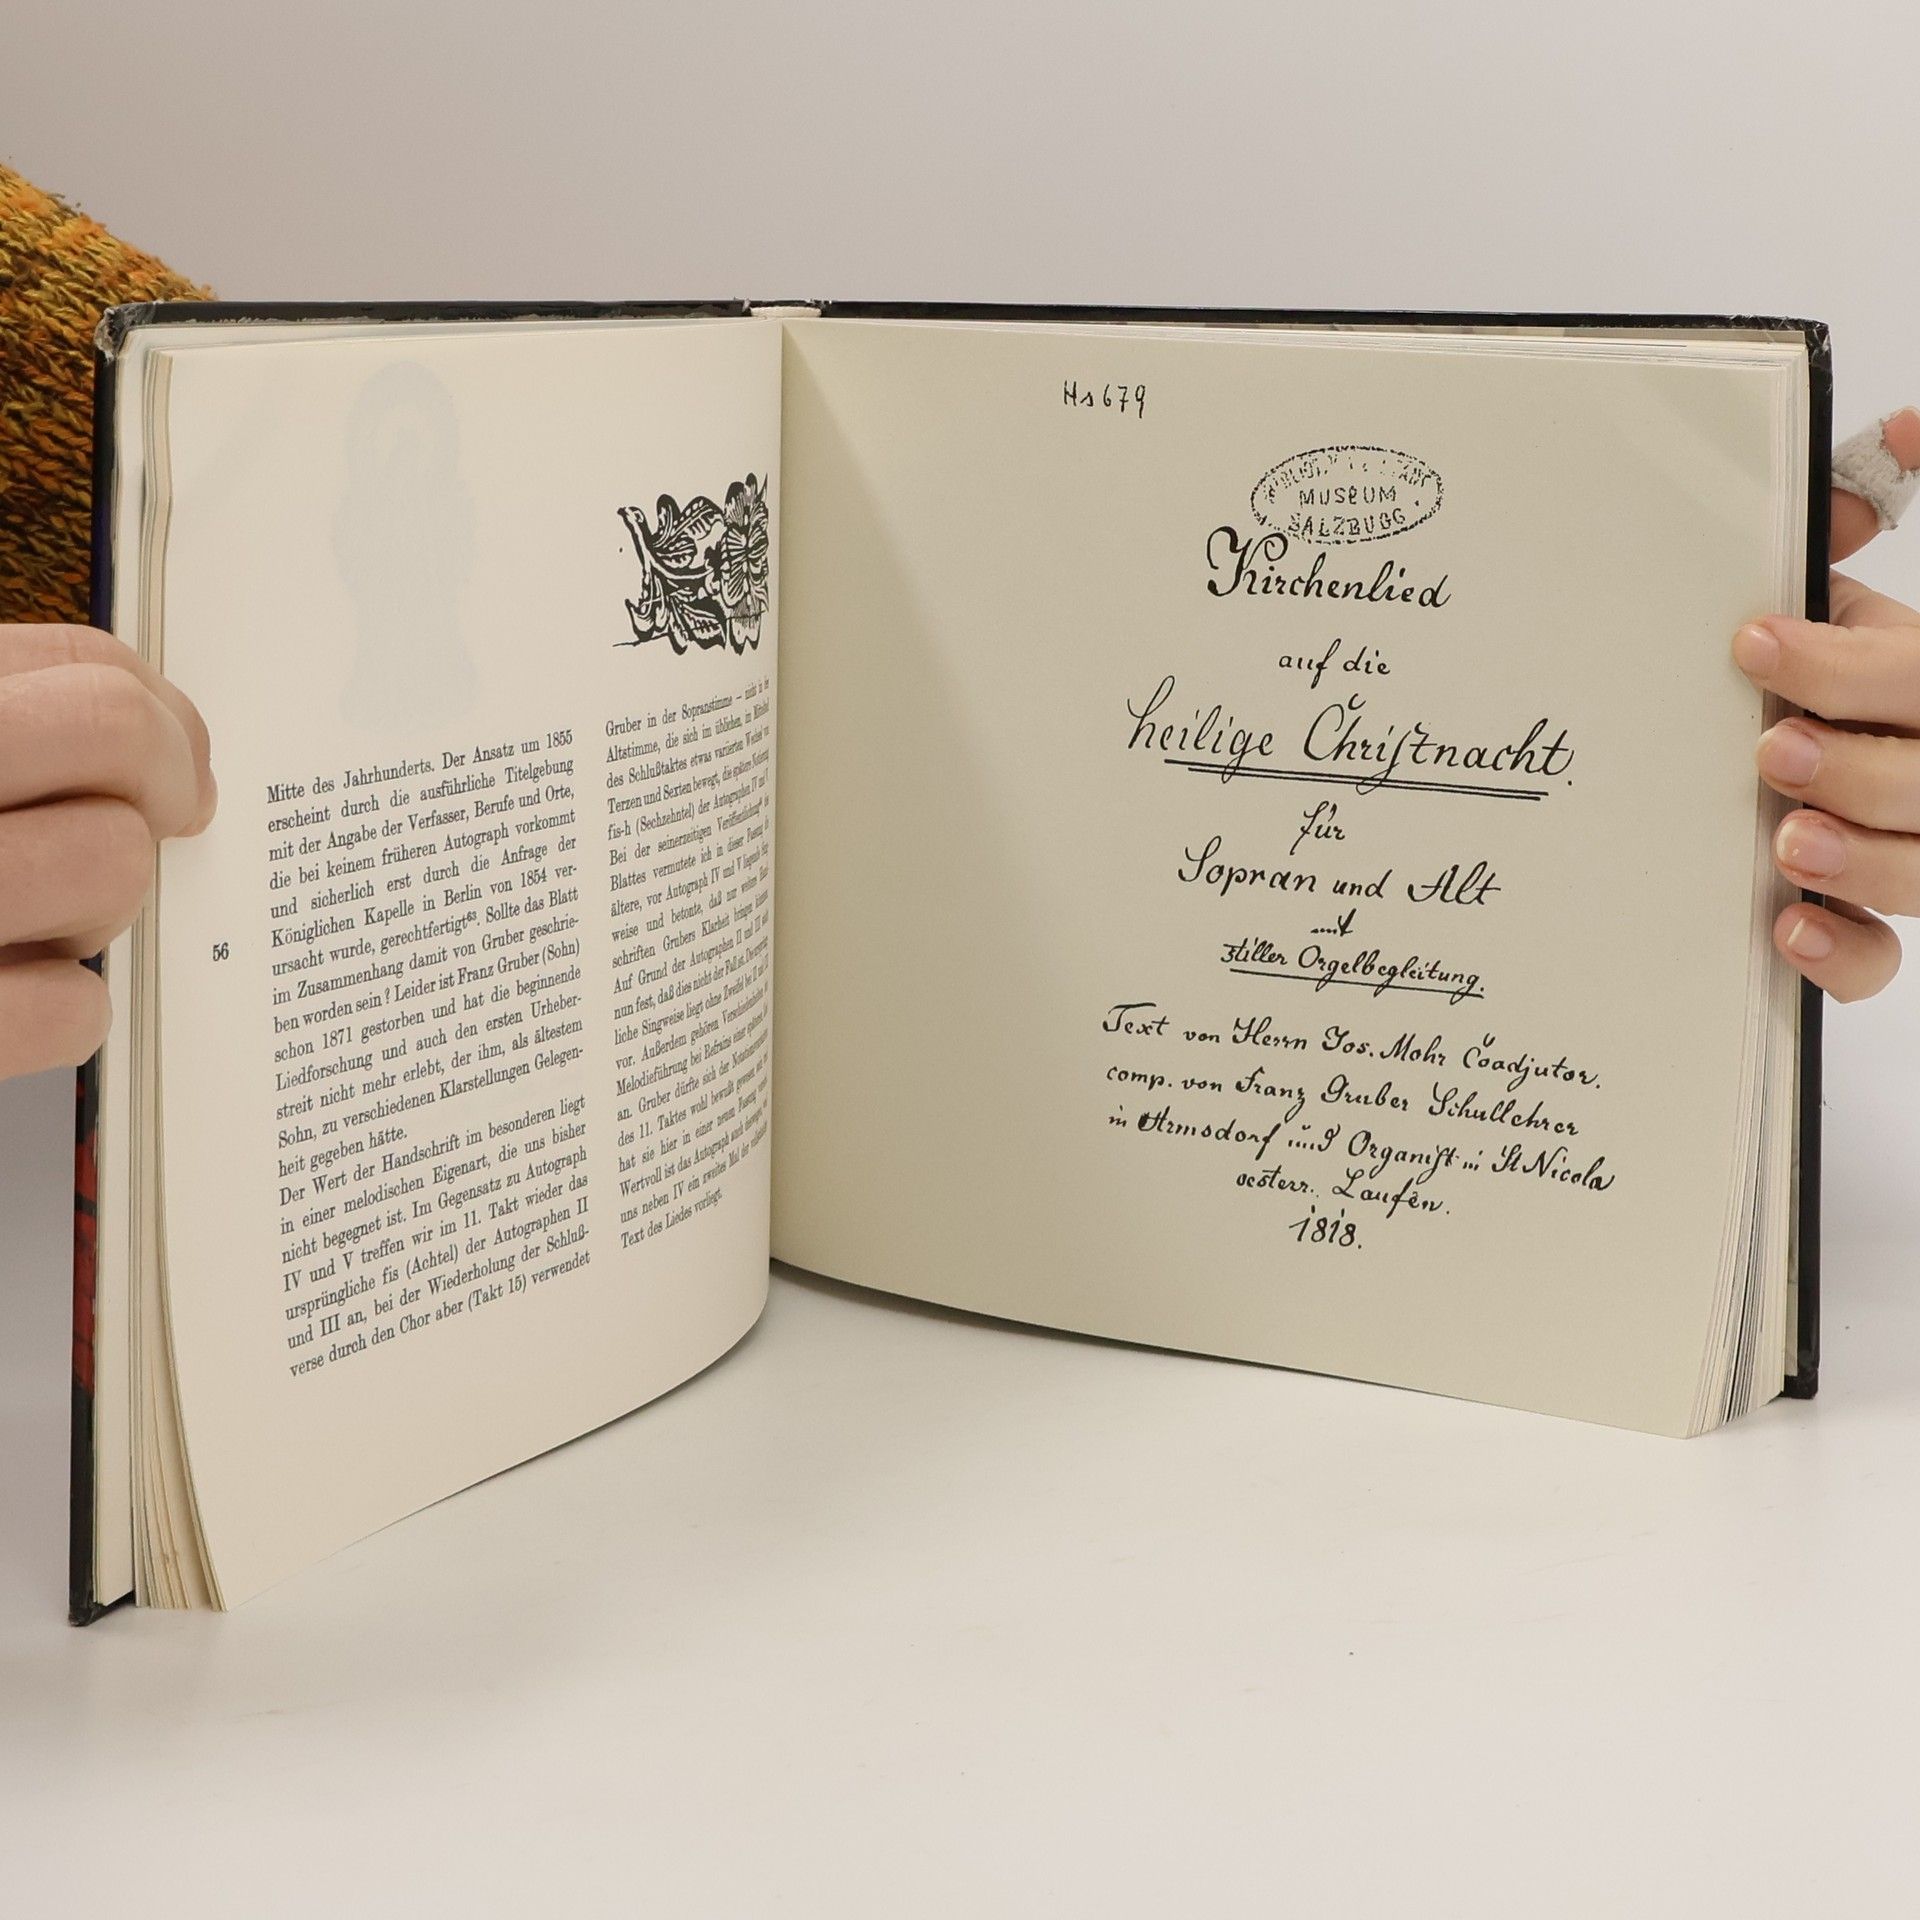 Mitte des Jahrhunderts. Der Ansatz um 1855
erscheint durch die ausführliche Titelgebung
mit der Angabe der Verfasser, Berufe und Orte,
die bei keinem früheren Autograph vorkommt
und sicherlich erst durch die Anfrage der
Königlichen Kapelle in Berlin von 1854 ver-
ursacht wurde, gerechtfertigt⁶³. Sollte das Blatt
im Zusammenhang damit von Gruber geschrie-
ben worden sein? Leider ist Franz Gruber (Sohn)
schon 1871 gestorben und hat die beginnende
Liedforschung und auch den ersten Urheber-
streit nicht mehr erlebt, der ihm, als ältestem
Sohn, zu verschiedenen Klarstellungen Gelegen-
heit gegeben hätte.
Der Wert der Handschrift im besonderen liegt
in einer melodischen Eigenart, die uns bisher
nicht begegnet ist. Im Gegensatz zu Autograph
IV und V treffen wir im 11. Takt wieder das
ursprüngliche fis (Achtel) der Autographen II
und III an, bei der Wiederholung der Schluß-
verse durch den Chor aber (Takt 15) verwendet
56
Gruber in der Sopranstimme — nicht in der
Altstimme, die sich im üblichen, in Mittelteil
des Schlußtaktes etwas variierten Wechsel von
Terzen und Sexten bewegt, die spätere Notierung
fis-h (Sechzehntel) der Autographen IV und V.
Bei der seinerzeitigen Veröffentlichung des
Blattes vermutete ich in dieser Fassung die
ältere, vor Autograph IV und V liegende Sing-
weise und betonte, daß nur weitere Hand-
schriften Grubers Klarheit bringen können.
Auf Grund der Autographen II und III steht
nun fest, daß dies nicht der Fall ist. Die ursprüng-
liche Singweise liegt ohne Zweifel bei II und III
vor. Außerdem gehören Verschiedenheiten der
Melodieführung bei Refrains einer späteren Zeit
an. Gruber dürfte sich der Notationsvarianten
des 11. Taktes wohl bewußt gewesen sein und
hat sie hier in einer neuen Fassung vereint.
Wertvoll ist das Autograph auch deswegen, weil
uns neben IV ein zweites Mal der vollständige
Text des Liedes vorliegt.
Hs 679
MUSEUM
SALZBURG
Kirchenlied
auf die
heilige Christnacht.
für
Sopran und Alt
mit
stiller Orgelbegleitung.
Text von Herrn Jos. Mohr Coadjutor.
comp. von Franz Gruber Schullehrer
in Arnsdorf und Organist in St Nicola
oesterr. Laufen.
1818.